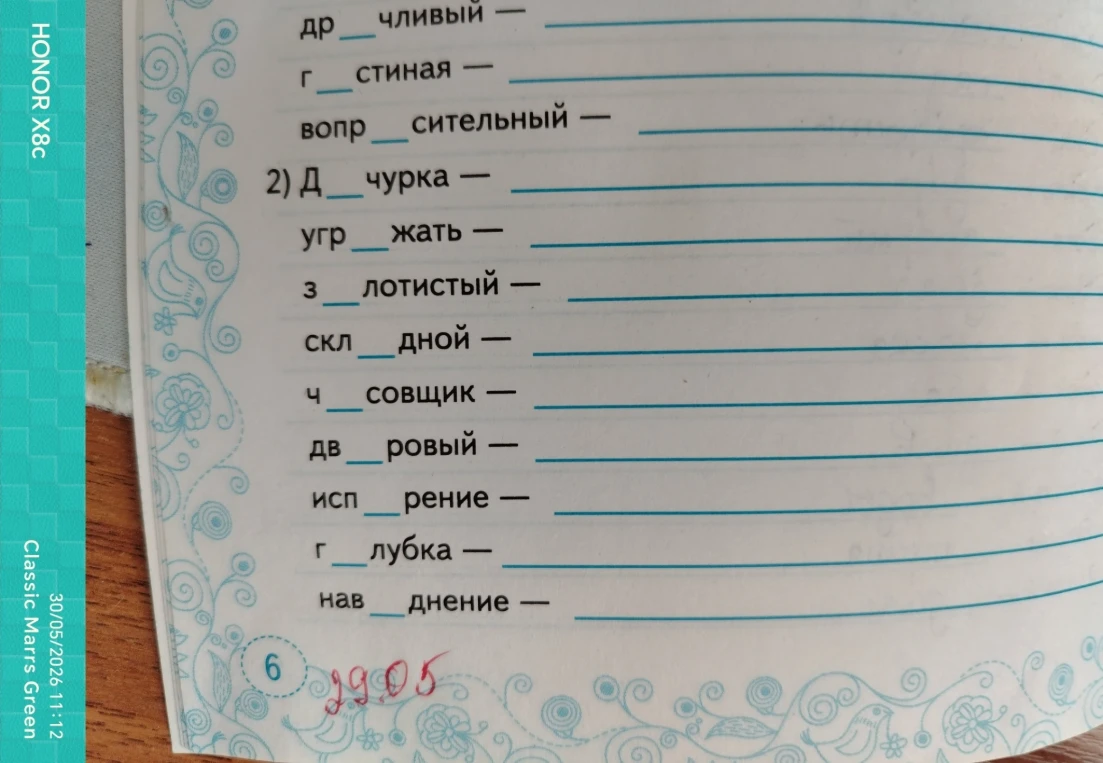 др__чливый —
г__стиная —
вопр__сительный —
2) Д__чурка —
угр__жать —
з__лотистый —
скл__дной —
ч__совщик —
дв__ровый —
исп__рение —
г__лубка —
нав__днение —
6
29.05
HONOR X8c
30/05/2026 11:12
Classic Marrs Green